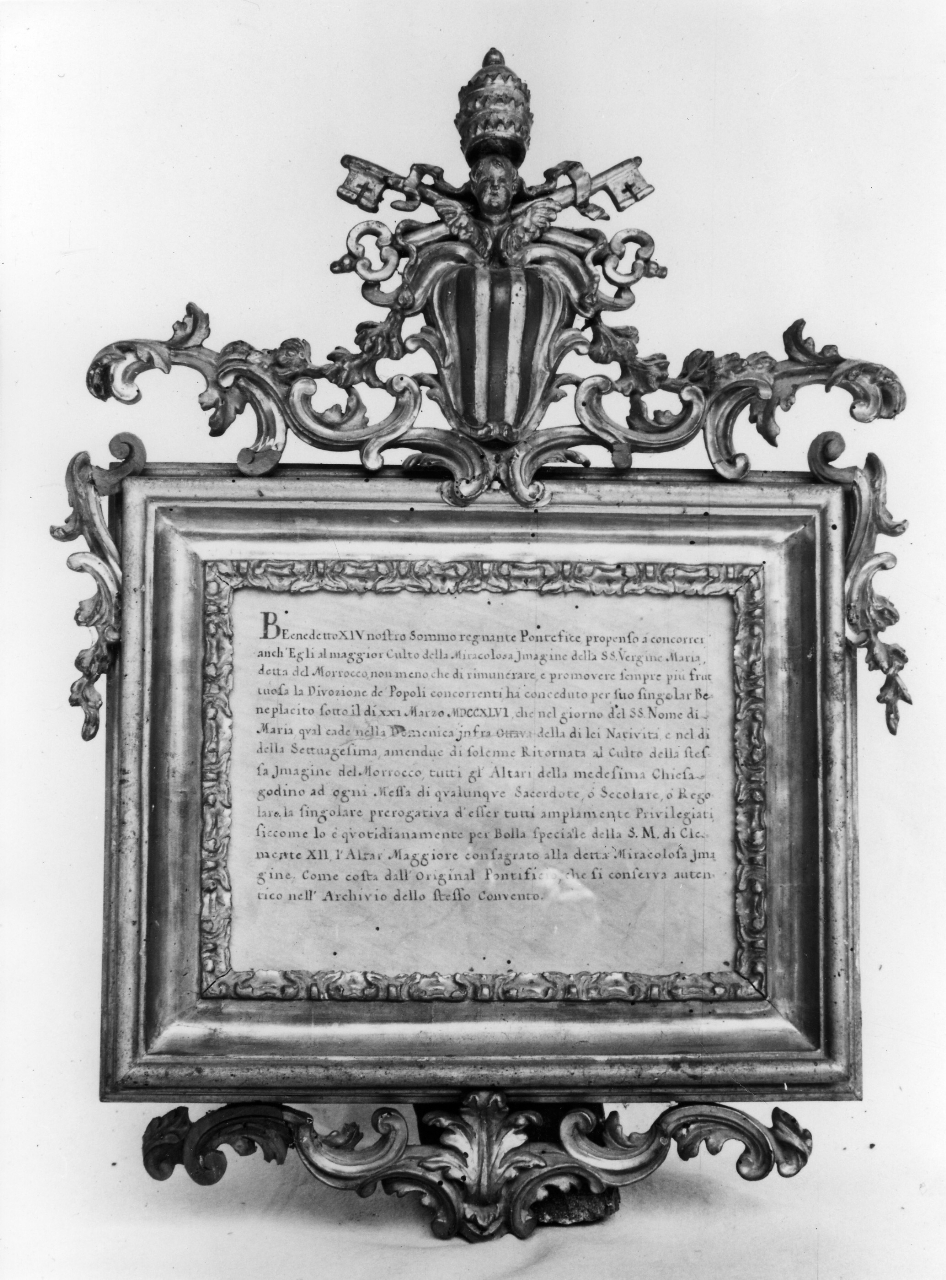 BEenedetto XIV nostro Sommo regnante Pontefice, propenso à concorrer
anch'Egli al maggior Culto della Miracolosa Jmagine della SS. Vergine Maria,
detta del Morrocco, non meno che di rimunerare, e promovere sempre più frut
tuosa la Divozione de' Popoli concorrenti hà conceduto per suo singolar Be-
neplacito sotto il dì XXI Marzo MDCCXLVI, che nel giorno del SS. Nome di
Maria qval cade nella Domenica jnfra Ottava della di lei Natività e nel dì
della Settuagesima, amendue di solenne Ritornata al Culto della stes-
sa Jmagine del Morrocco, tutti gl' Altari della medesima Chiesa
godino ad ogni Messa di qvalunqve Sacerdote, ò Secolare, ò Rego
lare, la singolare prerogativa d'esser tutti amplamente Privilegiati
siccome lo è qvotidianamente per Bolla speciale della S. M. di Cle-
mente XII, l'Altar Maggiore consagrato alla detta Miracolosa Jma
gine. Come costa dall' Original Pontificio che si conserva auten-
tico nell' Archivio dello stesso Convento.